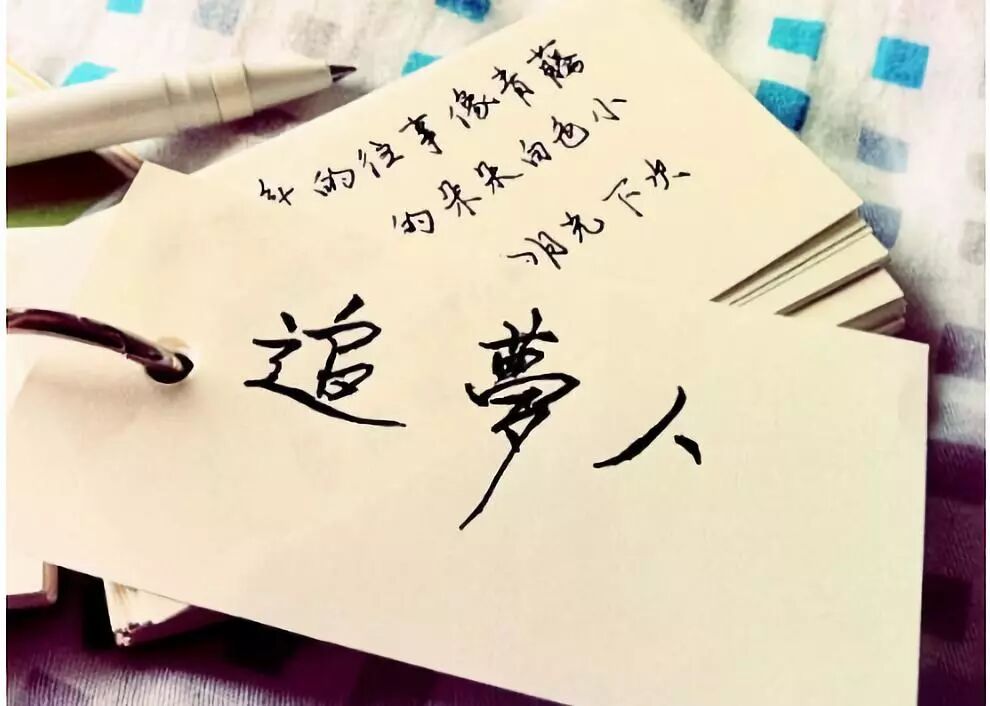 的往事像青藤
的朵朵白色小
月光下头
追夢人